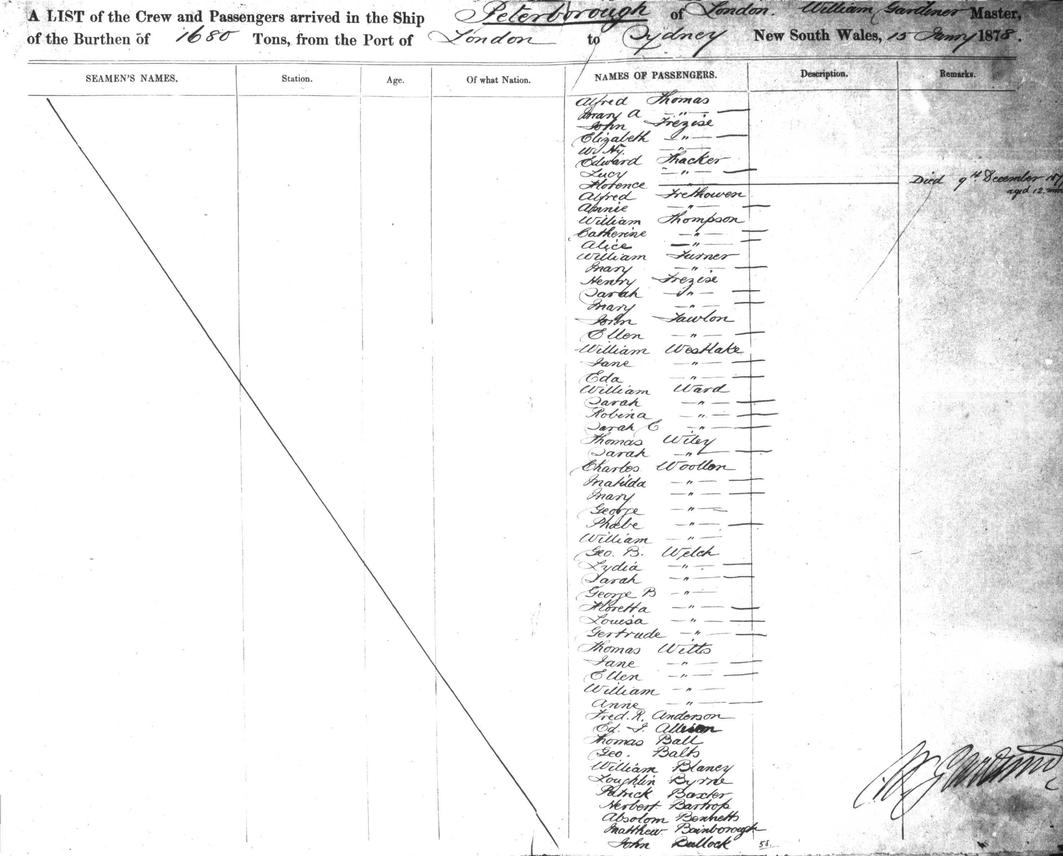 A LIST of the Crew and Passengers arrived in the Ship Peterborough of London. William Gardiner Master,
of the Burthen of 1680 Tons, from the Port of London to Sydney New South Wales, 15 Janry 1878.
SEAMEN'S NAMES. Station. Age. Of what Nation. NAMES OF PASSENGERS. Description. Remarks.
Alfred Thomas
Mary A — " —
John Trezise
Elizabeth — " —
Wm Hy. — " —
Edward Thacker
Lucy — " —
Florence Died 9th December 187
aged 12
Alfred Trethowen
Annie — " —
William Thompson
Catherine — " —
Alice — " —
William Turner
Mary — " —
Henry Trezise
Sarah — " —
Mary — " —
John Tawlon
Ellen — " —
William Westlake
Jane — " —
Eda — " —
William Ward
Sarah — " —
Robina — " —
Sarah C — " —
Thomas Wiley
Sarah — " —
Charles Woollen
Matilda — " —
Mary — " —
George — " —
Phœbe — " —
William — " —
Geo. B. Welch
Lydia — " —
Sarah — " —
George B — " —
Floretta — " —
Louisa — " —
Gertrude — " —
Thomas Witts
Jane — " —
Ellen — " —
William — " —
Anne — " —
Fred. R. Anderson
Ed. J. Allison
Thomas Ball
Geo. Balls
William Blaney
Loughlin Byrne
Patrick Baxter
Herbert Bartrop
Absolom Bennetts
Matthew Bainborough
John Bullock